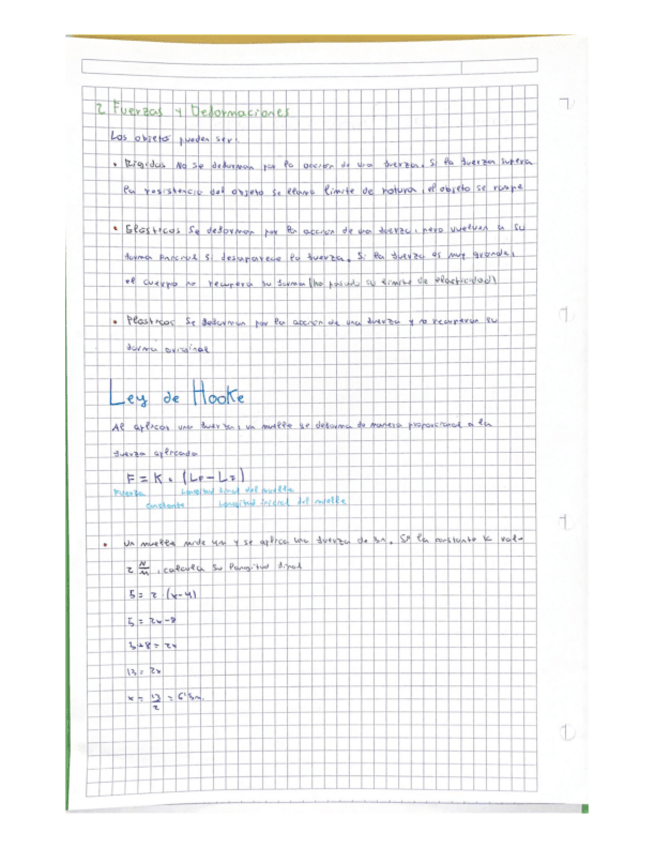 2 Fuerzas y Deformaciones
Los objetos pueden ser:
• Rígidos No se deforman por la acción de una fuerza. Si la fuerza supera
la resistencia del objeto se llama límite de rotura, el objeto se rompe
• Elásticos Se deforman por la acción de una fuerza, pero vuelven a su
forma inicial si desaparece la fuerza. Si la fuerza es muy grande,
el cuerpo no recupera su forma (ha pasado su límite de elasticidad)
• Plásticos Se deforman por la acción de una fuerza y no recuperan su
forma original
Ley de Hooke
Al aplicar una fuerza, un muelle se deforma de manera proporcional a la
fuerza aplicada
F = K · (LF - LI)
Fuerza Longitud final del muelle
Constante Longitud inicial del muelle
• Un muelle mide 4m y se aplica una fuerza de 5n. Si la constante K vale
2 N/m, calcula su longitud final
5 = 2 (x-4)
5 = 2x-8
5+8 = 2x
13 = 2x
x = 13/2 = 6'5m.